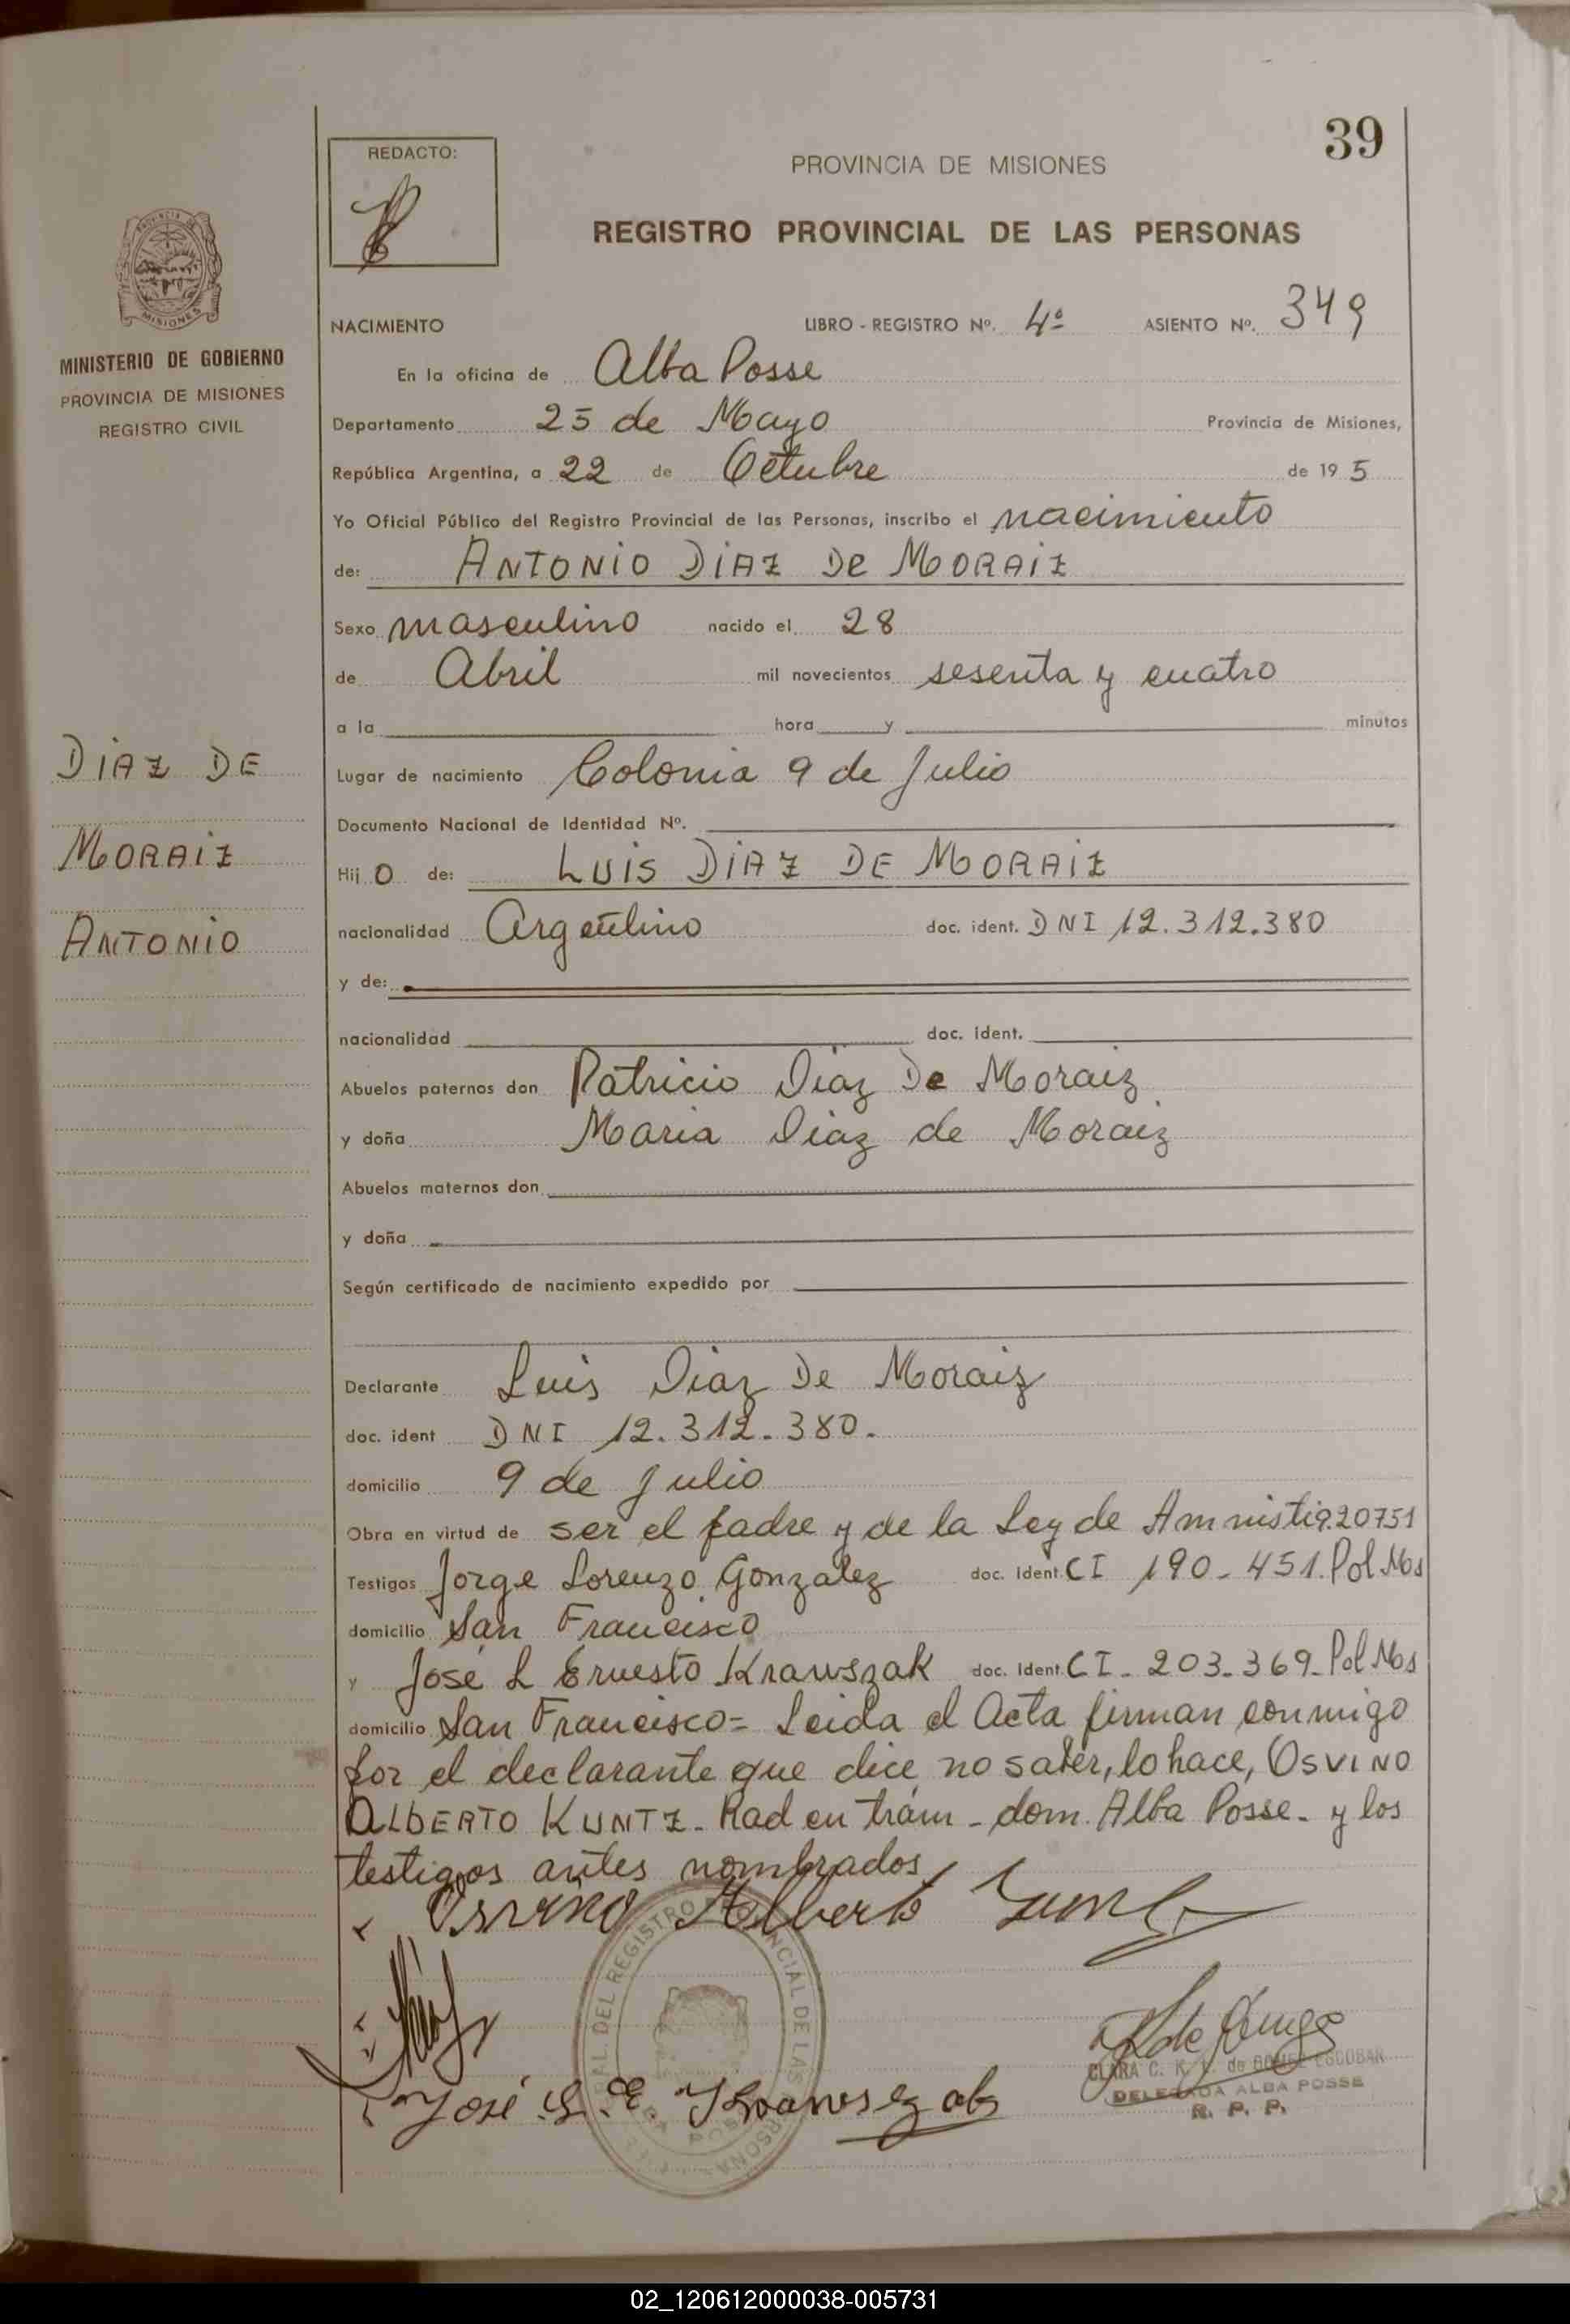 39
REDACTO:
PROVINCIA DE MISIONES
REGISTRO PROVINCIAL DE LAS PERSONAS
MISIONES
MINISTERIO DE GOBIERNO
PROVINCIA DE MISIONES
REGISTRO CIVIL
NACIMIENTO LIBRO - REGISTRO Nº. 4º ASIENTO Nº. 349
En la oficina de Alba Posse
Departamento 25 de Mayo Provincia de Misiones,
República Argentina, a 22 de Octubre de 19 5
Yo Oficial Público del Registro Provincial de las Personas, inscribo el nacimiento
de: ANTONIO DIAZ DE MORAIZ
Sexo masculino nacido el 28
de Abril mil novecientos sesenta y cuatro
a la hora y minutos
DIAZ DE
MORAIZ
ANTONIO
Lugar de nacimiento Colonia 9 de Julio
Documento Nacional de Identidad Nº.
Hij O de: LUIS DIAZ DE MORAIZ
nacionalidad Argentino doc. ident. DNI 12.312.380
y de:
nacionalidad doc. ident.
Abuelos paternos don Patricio Diaz De Moraiz
y doña Maria Diaz de Moraiz
Abuelos maternos don
y doña
Según certificado de nacimiento expedido por
Declarante Luis Diaz De Moraiz
doc. ident DNI 12.312.380.
domicilio 9 de Julio
Obra en virtud de ser el padre y de la Ley de Amnistia.20751
Testigos Jorge Lorenzo Gonzalez doc. Ident. CI 190-451. Pol Mos
domicilio San Francisco
y José L Ernesto Krawszak doc. Ident. CI - 203-369- Pol Mos
domicilio San Francisco= Leida el Acta firman conmigo
por el declarante que dice no saber, lo hace, OSVINO
ALBERTO KUNTZ - Rad en trám - dom. Alba Posse - y los
testigos antes nombrados
Osvino Alberto
DEL REGISTRO PROVINCIAL DE LAS PERSONAS
José L. E.
CLARA C. K. de GOMEZ ESCOBAR
DELEGADA ALBA POSSE
R. P. P.
02_120612000038-005731